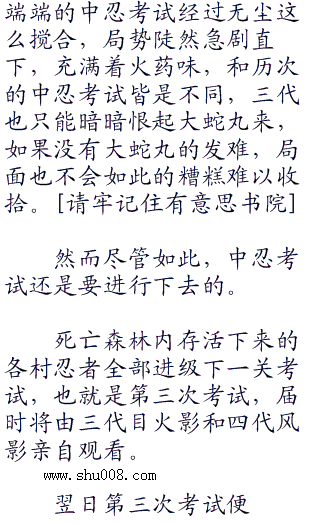 端端的中忍考试经过无尘这
么搅合，局势陡然急剧直
下，充满着火药味，和历次
的中忍考试皆是不同，三代
也只能暗暗恨起大蛇丸来，
如果没有大蛇丸的发难，局
面也不会如此的糟糕难以收
拾。[请牢记住有意思书院]
然而尽管如此，中忍考
试还是要进行下去的。
死亡森林内存活下来的
各村忍者全部进级下一关考
试，也就是第三次考试，届
时将由三代目火影和四代风
影亲自观看。
www.shu008.com
翌日第三次考试便